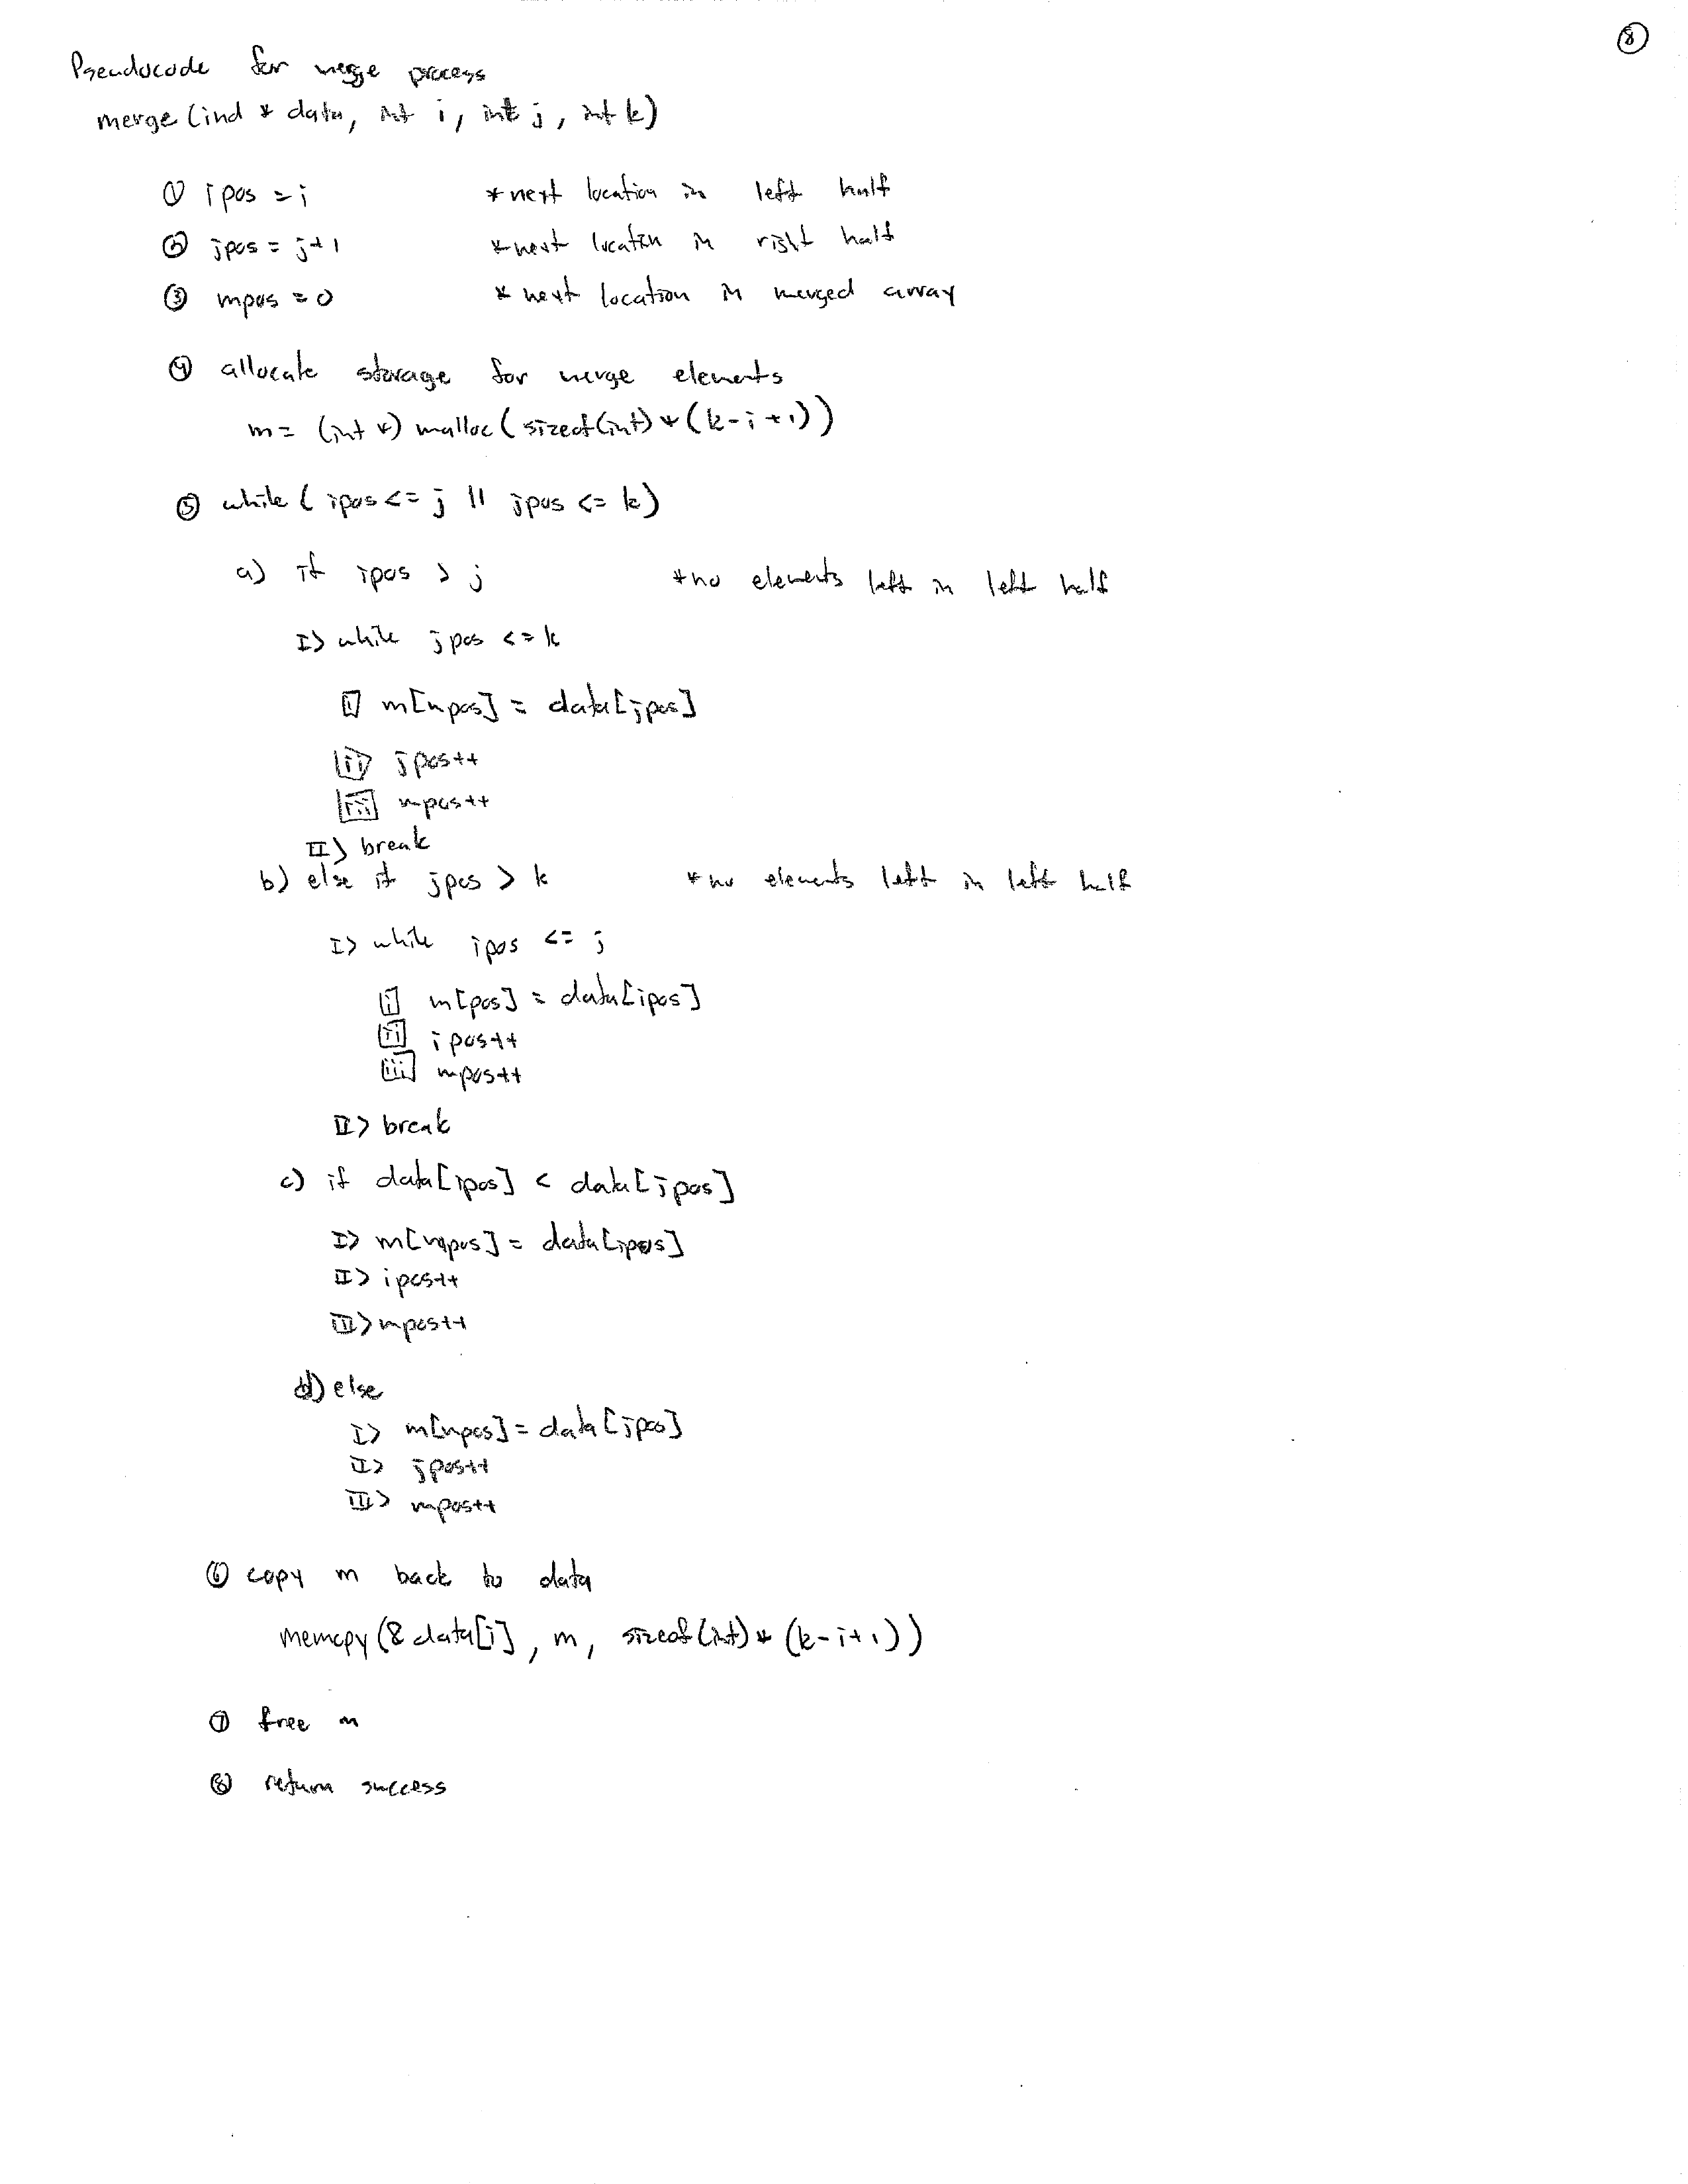 8
Pseudocode for merge process
merge (ind * data, int i, int j, int k)
① ipos = i *next location in left half
② jpos = j+1 *next location in right half
③ mpos = 0 * next location in merged array
④ allocate storage for merge elements
m = (int *) malloc ( sizeof(int) * (k-i+1))
⑤ while ( ipos <= j || jpos <= k)
a) if ipos > j *no elements left in left half
I> while jpos <= k
i m[mpos] = data[jpos]
ii jpos++
iii mpos++
II> break
b) else if jpos > k *no elements left in left half
I> while ipos <= j
i m[pos] = data[ipos]
ii ipos++
iii mpos++
II> break
c) if data[ipos] < data[jpos]
I> m[mpos] = data[ipos]
II> ipos++
III> mpos++
d) else
I> m[mpos] = data[jpos]
II> jpos++
III> mpos++
⑥ copy m back to data
memcpy (& data[i], m, sizeof(int) * (k-i+1))
⑦ free m
⑧ return success